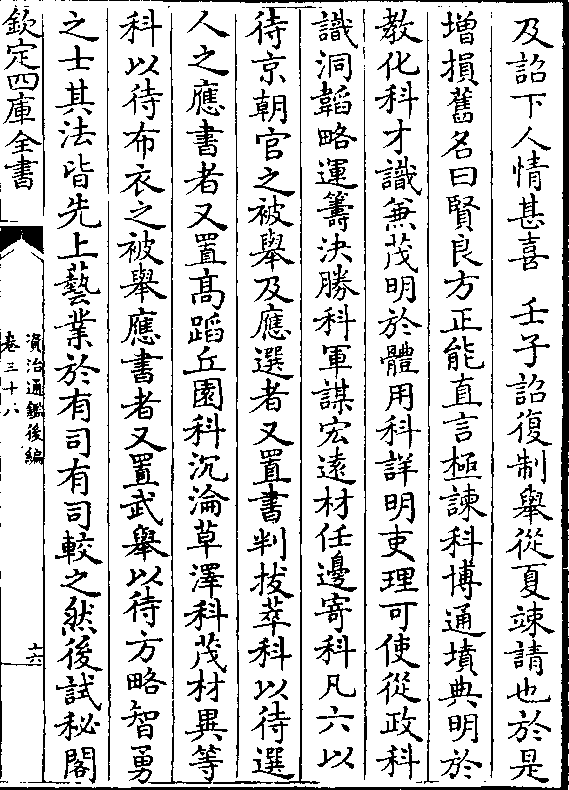 及詔下人情甚喜　壬子詔復制舉從夏竦請也於是
増損舊名曰賢良方正能直言極諫科博通墳典明於
教化科才識兼茂明於體用科詳明吏理可使從政科
識洞韜略運籌決勝科軍謀宏遠材任邊寄科凡六以
待京朝官之被舉及應選者又置書判拔萃科以待選
人之應書者又置髙蹈丘園科沉淪草澤科茂材異等
科以待布衣之被舉應書者又置武舉以待方略智勇
之士其法皆先上藝業於有司有司較之然後試秘閣
欽定四庫全書
資治通鑑後編
卷三十八
十六